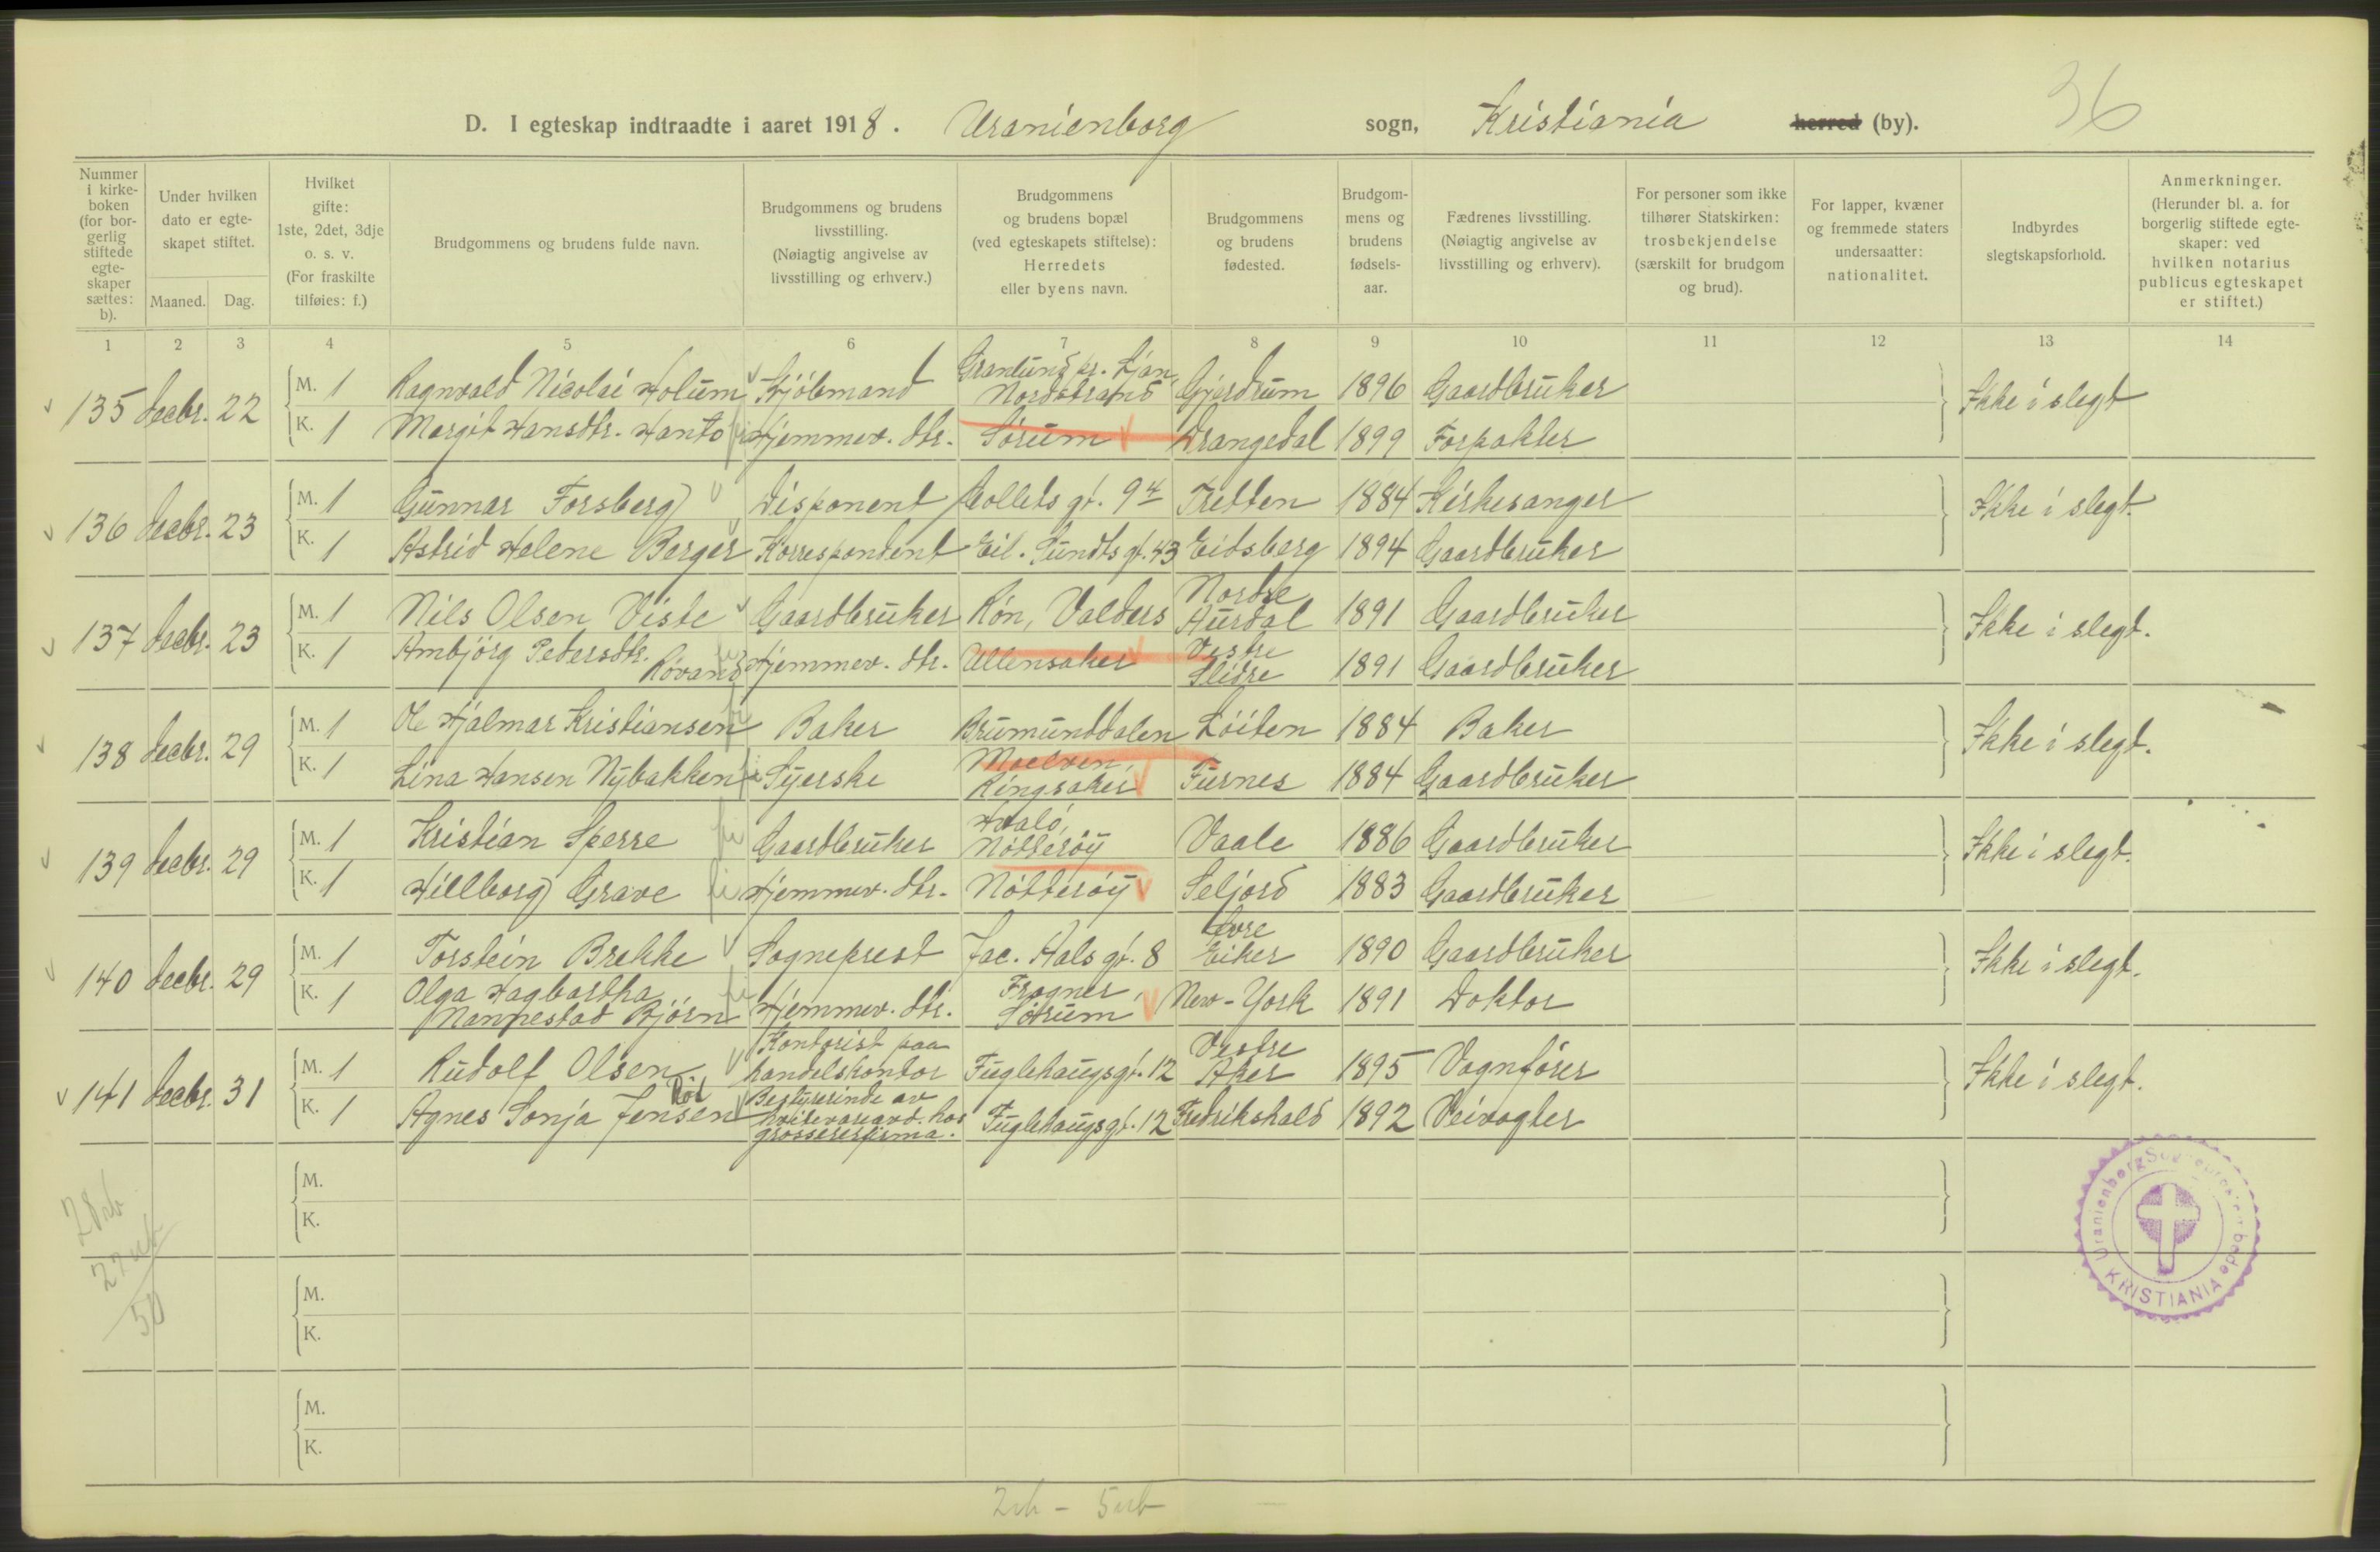 36
D. I egteskap indtraadte i aaret 1918. Uranienborg sogn, Kristiania herred (by).
Nummer i kirke-boken (for bor-gerlig stiftede egte-skaper sættes: b).
Under hvilken dato er egte-skapet stiftet.
Maaned. Dag.
Hvilket gifte: 1ste, 2det, 3dje o. s. v. (For fraskilte tilføies: f.)
Brudgommens og brudens fulde navn.
Brudgommens og brudens livsstilling. (Nøiagtig angivelse av livsstilling og erhverv.)
Brudgommens og brudens bopæl (ved egteskapets stiftelse): Herredets eller byens navn.
Brudgommens og brudens fødested.
Brudgom-mens og brudens fødsels-aar.
Fædrenes livsstilling. (Nøiagtig angivelse av livsstilling og erhverv).
For personer som ikke tilhører Statskirken: trosbekjendelse (særskilt for brudgom og brud).
For lapper, kvæner og fremmede staters undersaatter: nationalitet.
Indbyrdes slegtskapsforhold.
Anmerkninger. (Herunder bl. a. for borgerlig stiftede egte-skaper: ved hvilken notarius publicus egteskapet er stiftet.)
1 2 3 4 5 6 7 8 9 10 11 12 13 14
135 decbr. 22 M. 1 Ragnvald Nicolai Holum Hjólmand Granlund pr. Ljan, Nordstrand Gjerdrum 1896 Gaardbruker Ikke i slegt
K. 1 Margit Hansdtr. Hanto Hjemmev. dtr. Sórum Drangedal 1899 Forpakter
136 decbr. 23 M. 1 Gunnar Forsberg Disponent Colletts gt. 94 Tretten 1884 Kirkesanger Ikke i slegt.
K. 1 Astrid Helene Berger Korrespondent Eil. Sundts gt. 43 Eidsberg 1894 Gaardbruker
137 decbr. 23 M. 1 Nils Olsen Viste Gaardbruker Rón, Valders Nordre Aurdal 1891 Gaardbruker Ikke i slegt.
K. 1 Ambjörg Petersdtr. Róvand Hjemmev. dtr. Ullensaker Vestre Slidre 1891 Gaardbruker
138 decbr. 29 M. 1 Ole Hjalmar Kristiansen Baker Brumunddalen Lóiten 1884 Baker Ikke i slegt.
K. 1 Lina Hansen Nybakken Syerske Moelven, Ringsaker Furnes 1884 Gaardbruker
139 decbr. 29 M. 1 Kristian Sperre Gaardbruker Hvaló, Nótteróy Vaale 1886 Gaardbruker Ikke i slegt.
K. 1 Hillborg Grave Hjemmev. dtr. Nótteróy Seljord 1883 Gaardbruker
140 decbr. 29 M. 1 Torstein Brekke Sogneprest Jac. Hals gt. 8 Óvre Eiker 1890 Gaardbruker Ikke i slegt.
K. 1 Olga Hagbartha Mannestad Bjórn Hjemmev. dtr. Frogner, Sórum New-York 1891 Doktor
141 decbr. 31 M. 1 Rudolf Olsen Kontorist paa handelskontor Fuglehaugsgt. 12 Vestre Aker 1895 Vognfórer Ikke i slegt.
K. 1 Agnes Sonja Jensen Ród Bestyrerinde av hvitevareavd. hos grossererfirma. Fuglehaugsgt. 12 Fredrikshald 1892 Veivogter
M.
K.
M.
K.
M.
K.
50
Uranienborg Sogneprestembede KRISTIANIA